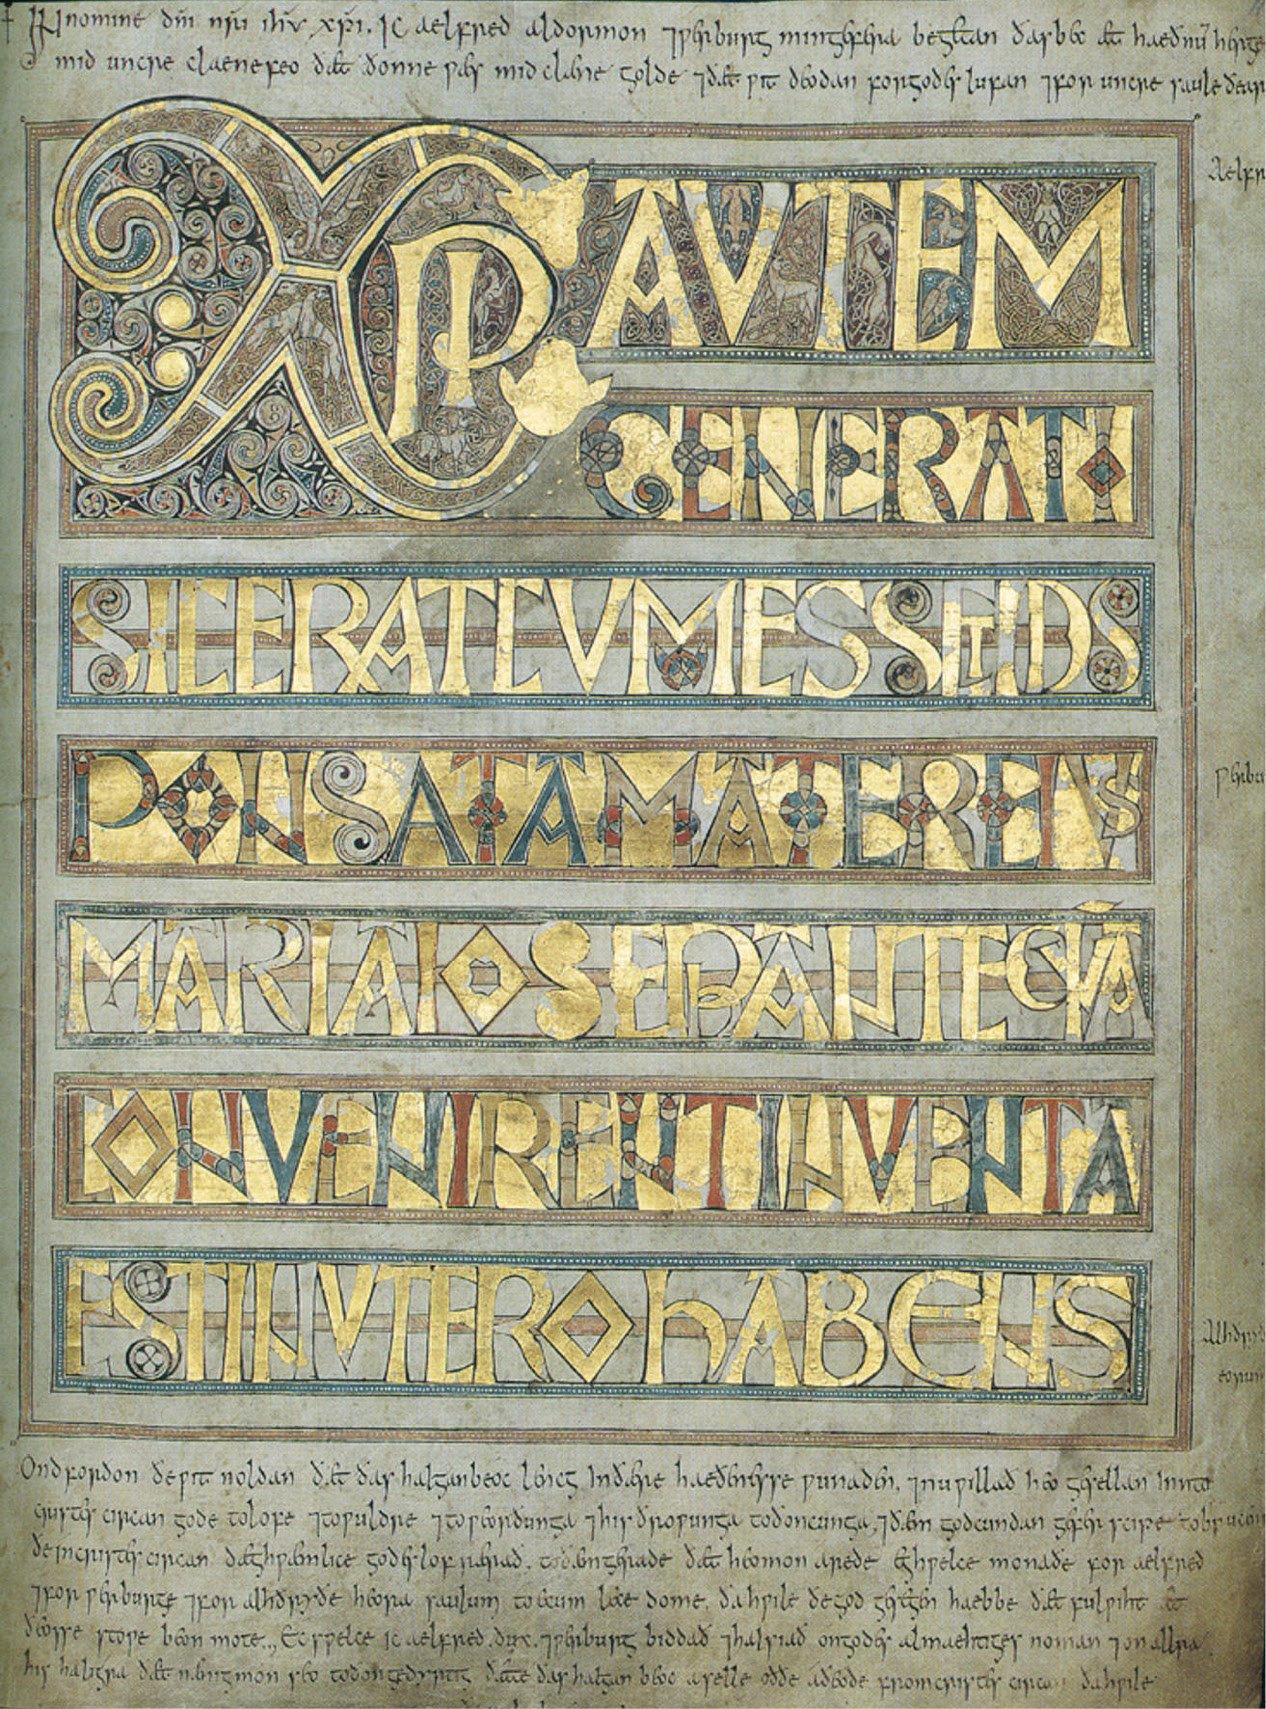 + IN nomine dñi nr̄i ihū xp̄i. Ic aelfred aldormon ⁊ ƿerburg min gefera begetan ðas bec æt haeðnū herge
mid uncre claene feo ðæt ðonne ƿæs mid clæne golde ⁊ ðæt ƿit deodan for godes lufan ⁊ for uncre saule ðear
XPI AVTEM
GENERATI
SIC ERAT CVM ESSET DIS
PONSATA MATER EIVS
MARIA IOSEP ANTEQVĀ
CONVENIRENT INVENTA
EST IN VTERO hABENS
Aelfr
ƿerbu
Alhðryð
eorum
Ond forðon ðe ƿit noldan ðæt ðas halgan beoc lencg in ðære haeðenesse ƿunaden, ⁊ nu ƿillað heo gesellan inn to
cristes circan gode to lofe ⁊ to ƿuldre ⁊ to ƿeorðunga ⁊ his ðroƿunga to ðoncunga, ⁊ ðæm godcundan geferscipe to brucen
ðe in cristes circan dæghƿæmlice godes lof rærað, to ðæm gerade ðæt heo mon arede eghƿelce monaðe for aelfred
⁊ for ƿerburge ⁊ for alhðryðe heora saulum to ecum lecedome, ða hƿile ðe god gesegen haebbe ðæt fulƿiht æt
ðeosse stoƿe beon mote. Ec sƿelce ic aelfred dux ⁊ ƿerburg biddað ⁊ halsiað on godes almaehtiges noman ⁊ on allra
his haligra ðæt nænig mon seo to ðon gedyrstig ðætte ðas halgan beoc aselle oððe aðeode from cristes circan ða hƿile